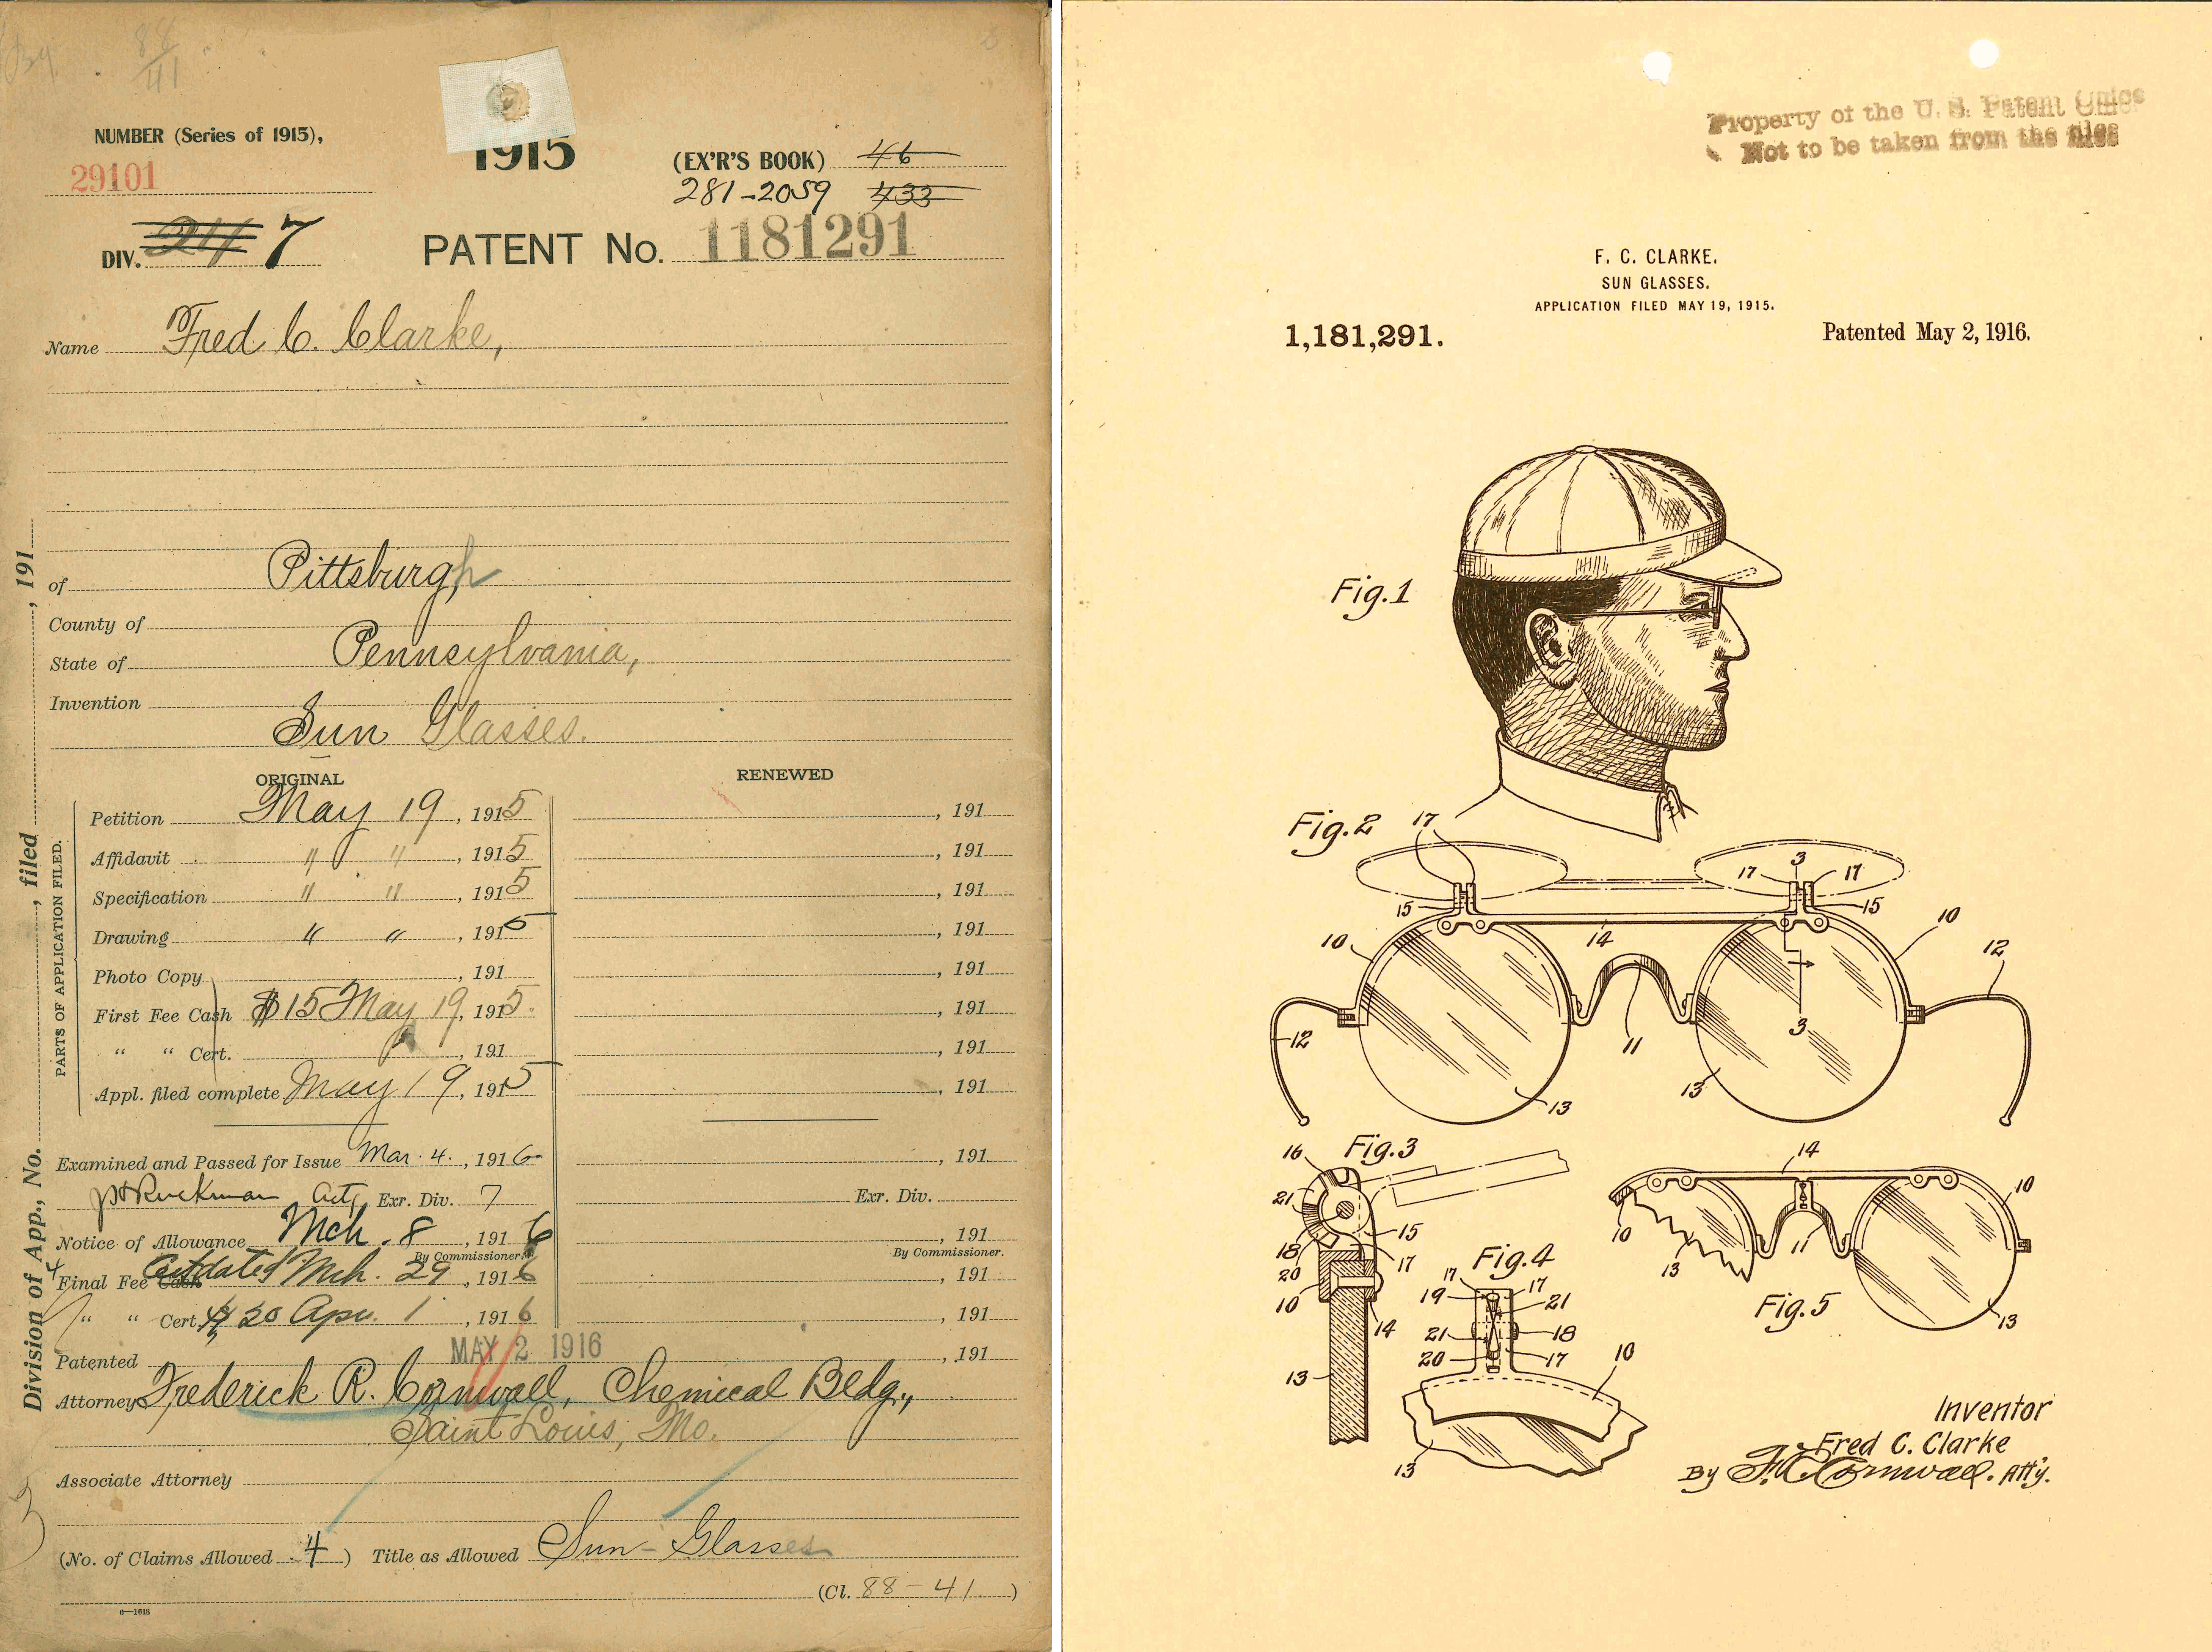 84
41
NUMBER (Series of 1915),
29101
1915
(EX'R'S BOOK) 46
281-2059 433
DIV. 241 7
PATENT No. 1181291
Name Fred C. Clarke,
of Pittsburgh
County of
State of Pennsylvania,
Invention
Sun Glasses.
ORIGINAL
RENEWED
Division of App., No. , filed , 191
PARTS OF APPLICATION FILED.
Petition May 19, 1915 , 191
Affidavit " " , 1915 , 191
Specification " " , 1915 , 191
Drawing " " , 1915 , 191
Photo Copy , 191 , 191
First Fee Cash $15 May 19, 1915. , 191
" " Cert. , 191 , 191
Appl. filed complete May 19, 1915 , 191
Examined and Passed for Issue Mar. 4., 1916 , 191
Exr. Div. 7 Exr. Div.
Notice of Allowance Mch. 8, 1916 , 191
By Commissioner. By Commissioner.
Final Fee Cash Mch. 29, 1916 , 191
" " Cert. $20 Apr. 1, 1916 , 191
Patented MAY 2 1916 , 191
Attorney Frederick R. Cornwall, Chemical Bldg.,
Saint Louis, Mo.
Associate Attorney
(No. of Claims Allowed 4) Title as Allowed Sun-Glasses
(Cl. 88-41.)
6-1618
Property of the U. S. Patent Office
Not to be taken from the files
F. C. CLARKE.
SUN GLASSES.
APPLICATION FILED MAY 19, 1915.
1,181,291.
Patented May 2, 1916.
Fig.1
Fig.2
17
3
17
17
15
15
10
14
10
12
12
11
3
13
13
Fig.3
16
21
15
18
17
20
10
14
13
Fig.4
17
17
19
21
21
18
20
17
10
13
14
10
10
11
13
13
Fig.5
Inventor
Fred C. Clarke
By F. R. Cornwall. Att'y.